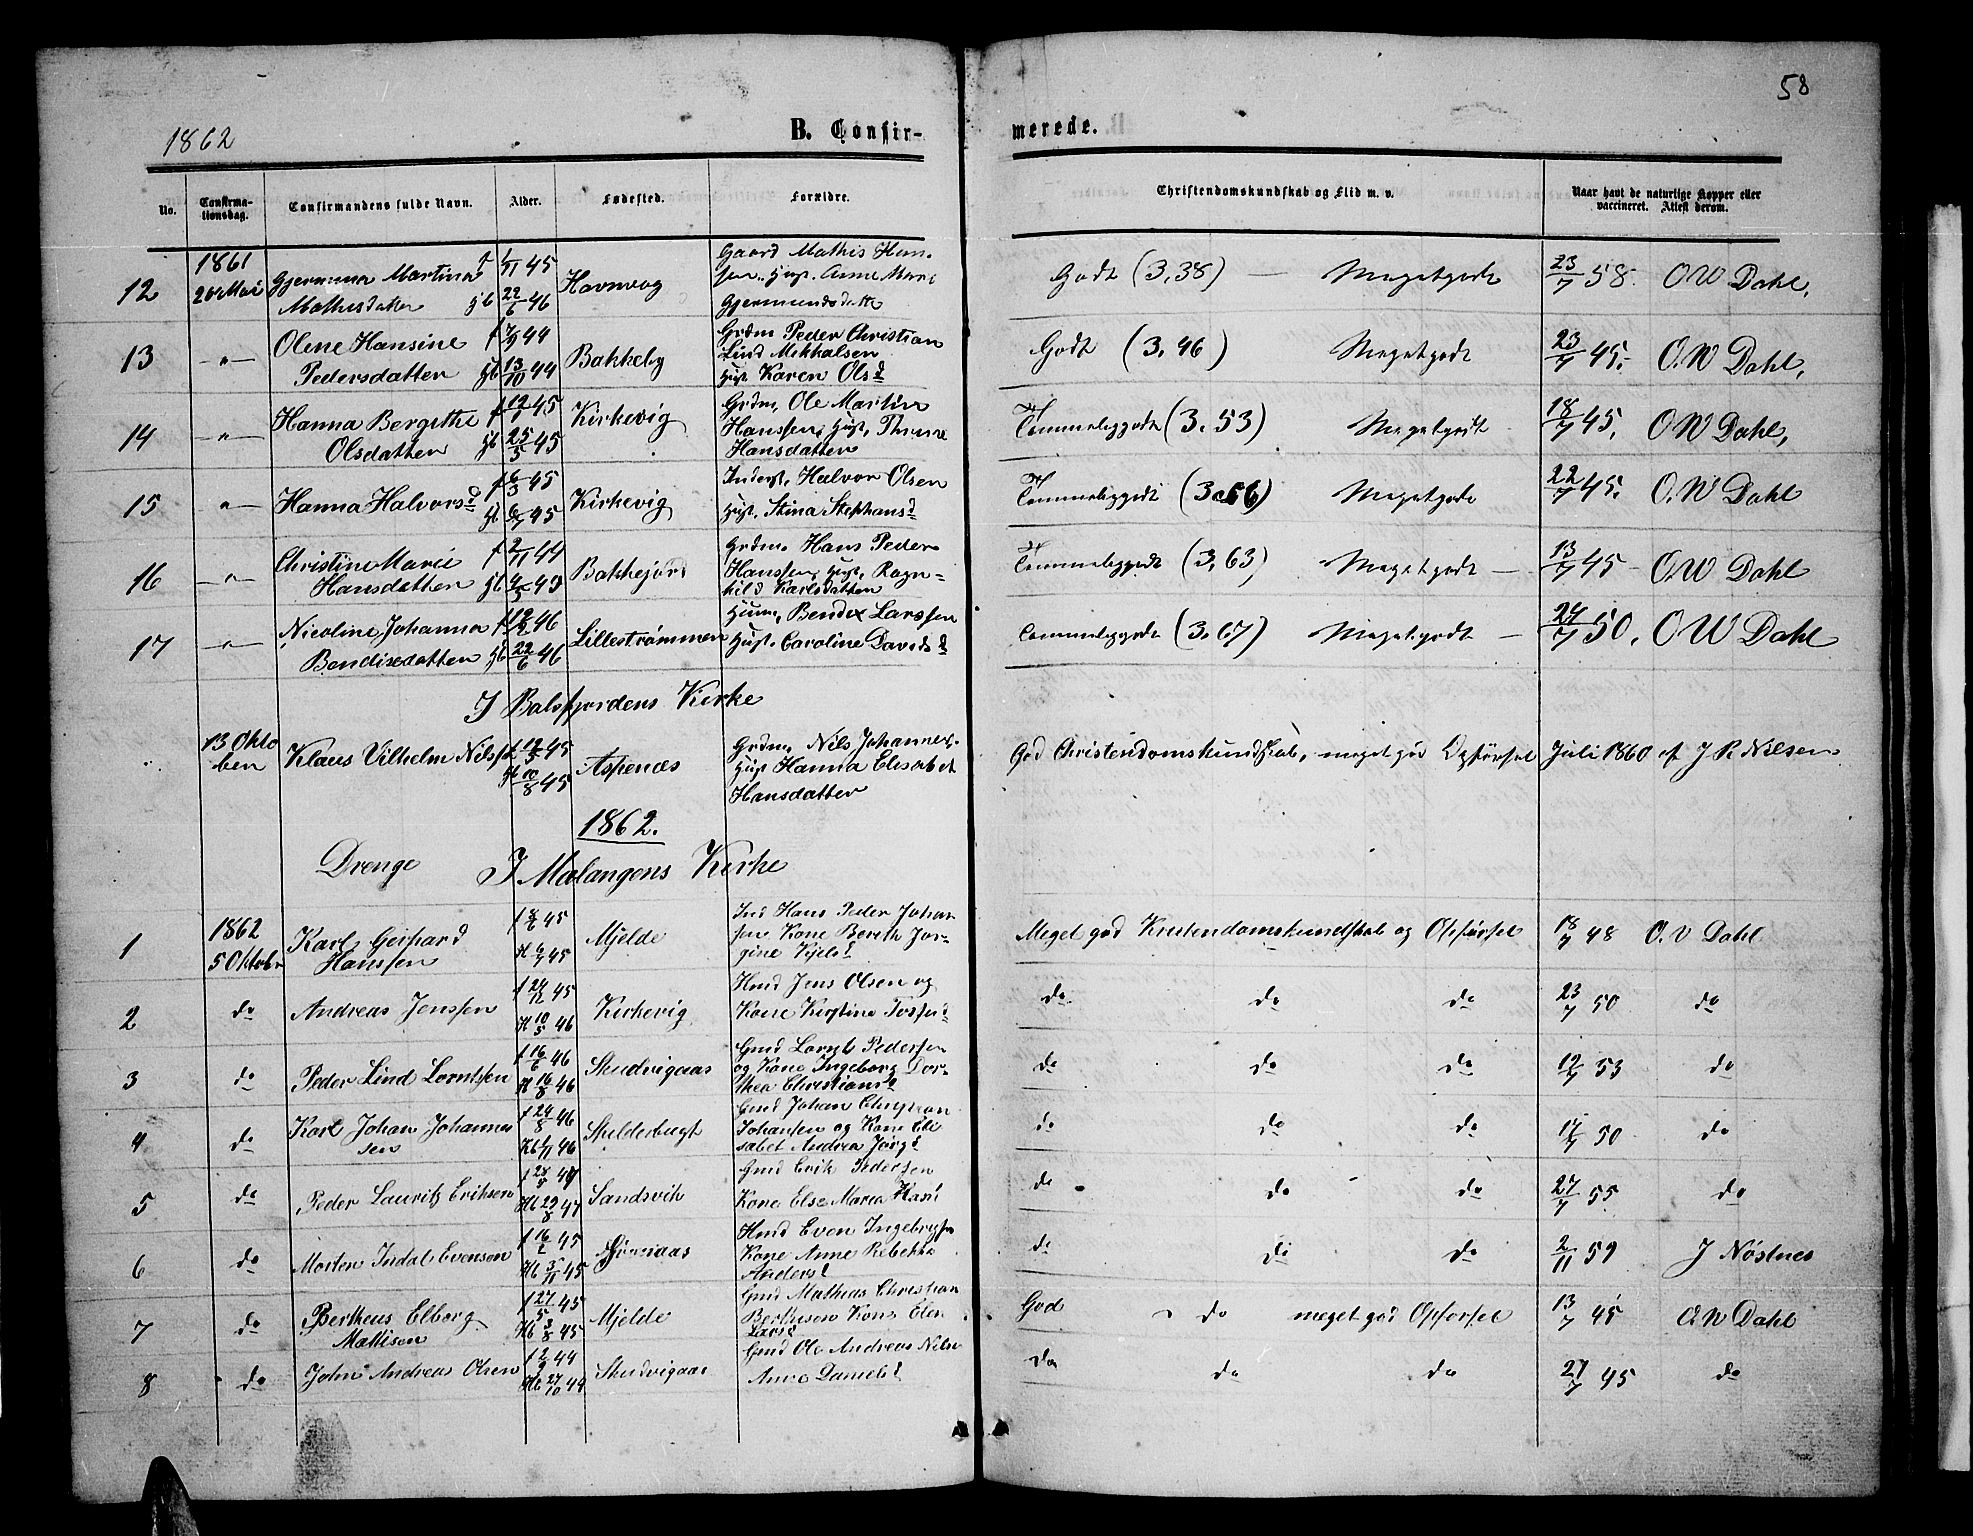 58
1862
B. Confir-
merede.
No.
Confirma-
tionsdag.
Confirmandens fulde Navn.
Alder.
Fødested.
Forældre.
Christendomskundskab og Flid m. v.
Naar havt de naturlige Kopper eller
vaccineret. Attest derom.
12 1861 20 Mai Gjermina Martina Mathisdatter f 1/11 45 gb 22/6 46 Havnvog Gaard Mathis Han-
sen, Hust. Anne Marie
Gjermundsdatter Godt (3,38) — Megetgodt 23/7 58. O W Dahl,
13 —"— Olene Hansine Pedersdatter f 7/9 44 gb 13/10 44 Bakkeby Grdm Peder Christian
Lind Mikkalsen
Hust Karen Olsd Godt (3,46) Megetgodt 23/7 45. O.W Dahl,
14 —"— Hanna Bergithe Olsdatter f 12/1 45 gb 25/5 45 Kirkevig Grdm, Ole Martin
Hanssen, Hust,
Hansdatter Temmeliggodt (3,53) Megetgodt 18/7 45, O W Dahl,
15 —"— Hanna Halvorsd f 6/3 45 gb 6/7 45 Kirkevig Inderst, Halvor Olsen
Hust, Stina Stephansd Temmeliggodt (3,56) Megetgodt 22/7 45. O.W Dahl
16 —"— Christine Marie Hansdatter f 2/11 44 Bakkejord Grdm. Hans Peder
Hanssen, Hust, Ragn-
hild Karlsdatter Temmeliggodt (3,63) Megetgodt — 13/7 45 O.W Dahl
17 —"— Nicoline Johanna Bendixdatter f 12/2 46 gb 22/6 46 Lillestrømmen Huusm, Bendix Larssen
Hust. Caroline Davidsd Temmeliggodt (3,67) Megetgodt — 24/7 50. O W Dahl
I Balsfjordens Kirke
13 Okto
ber Klaus Vilhelm Nilss f 12/5 45 Aspenæs Grdm, Nils Johannes,
Hust Hanna Elisabet
Hansdatter God Christendomskundskab, meget god Opførsel Juli 1860 af J R Nilsen
1862.
Drenge I Malangens Kirke
1 1862 5 Oktobr Karl Gerhard Hanssen 6/7 45 Mjelde Ind Hans Peder Johan
sen Kone Bereth Jor-
gine Kjelsd Meget god Kristendomskundskab og Opførsel 18/7 48 O. V Dahl
2 do Andreas Jenssen f 24/12 45 H 10/5 46 Kirkevig Hmd Jens Olsen og
Kone Kirstine do do do 23/7 50 do
3 do Peder Lind Lorntssen f 16/6 46 H 16/8 46 Skudvigaas Gmd Lornts Pedersen
og Kone Ingeborg Dor-
thea Christiansd do do do 12/7 53 do
4 do Karl Johan Johannes
sen f 24/8 46 Hb 1/11 46 Skilderbugt Gmd Johan
Johansen og Kone Eli
sabet Andrea Jørgd do do do 17/7 50 do
5 do Peder Lauritz Eriksen Hb 29/8 47 Sandsvik Gmd Erik Pedersen
Kone Else Maria Hansd do do do 27/7 55 do
6 do Morten Indal Evensen f 16/2 45 Hb 3/11 45 Hmd Even Ingebrigtsn
Kone Anne Rebekka
Andersd do do do 2/11 59 J Nøstnes
7 do Bertheus Elborg Mathisen f 27/5 45 Hb 3/8 45 Mjelde Gmd Mathias Christian
Bertheusen Kone Elen
Larsd God " do meget god Opførsel 13/7 45 O W Dahl
8 do John Andreas Olsen f 2/9 44 Hb 27/10 44 Skudvigaas Gmd Ole Andreas Nilsn
Anne Danield do do do 27/7 45 do